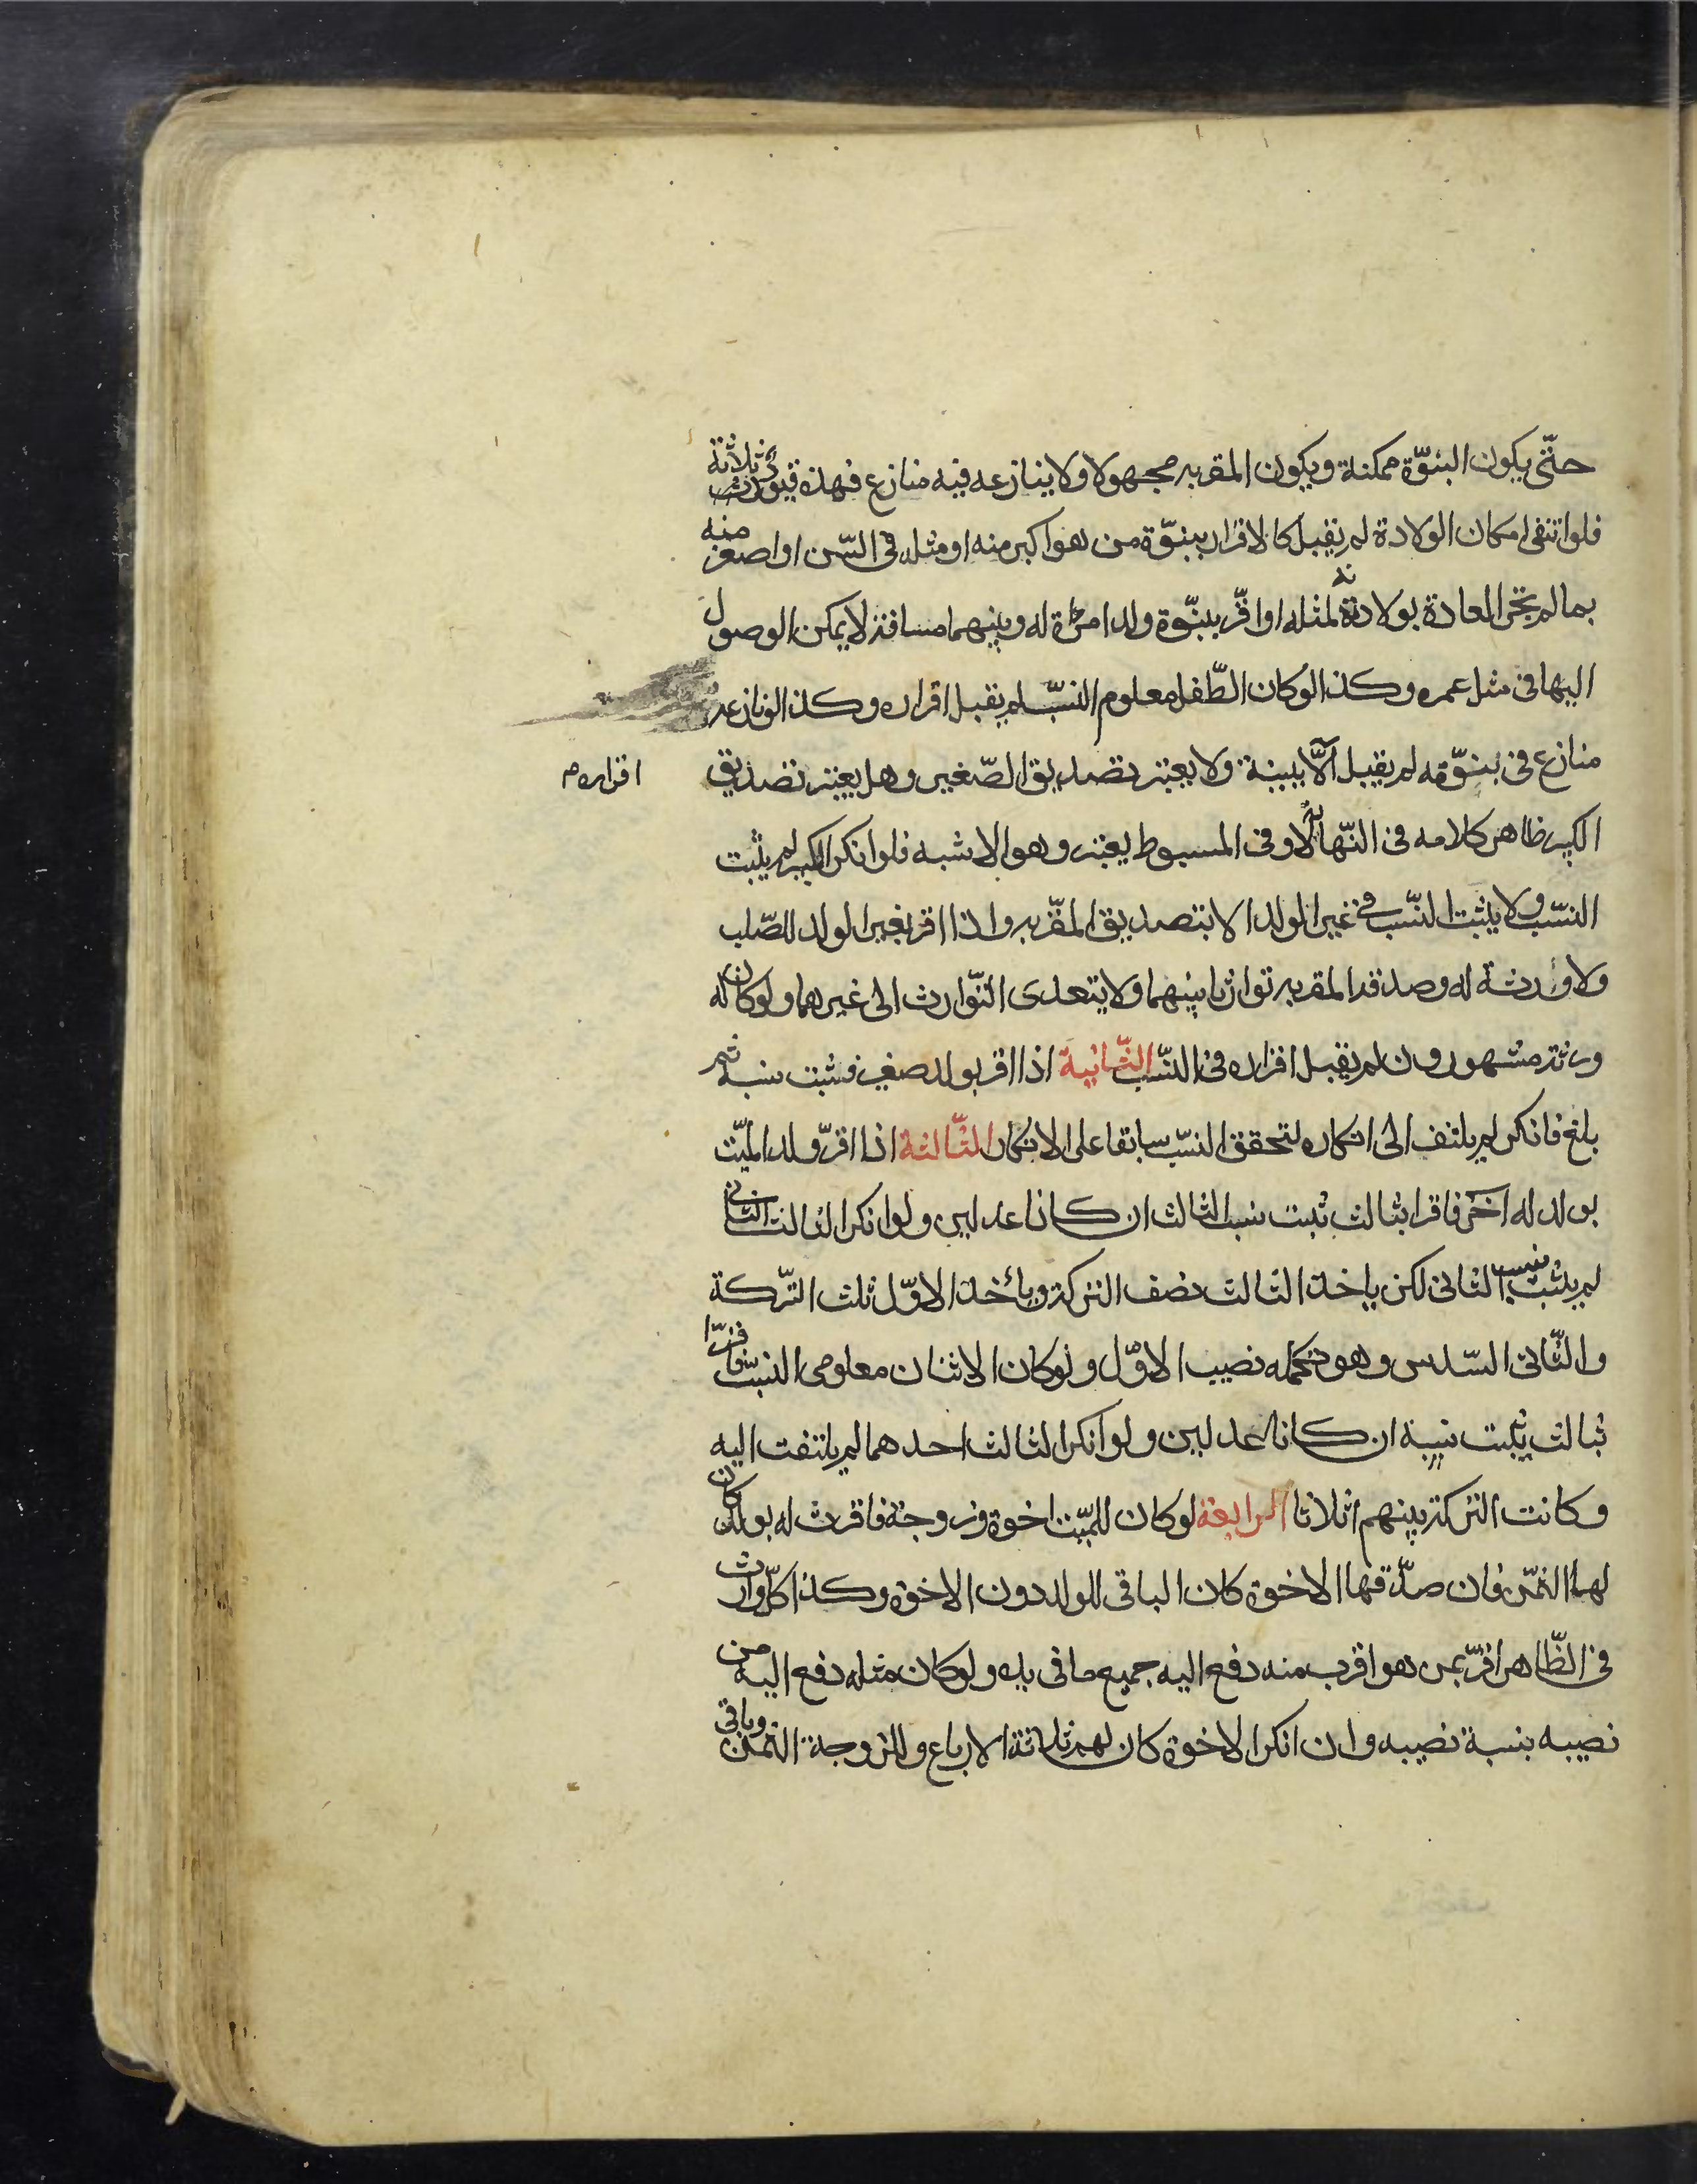 حتّى يكون البنوّة ممكنة ويكون المقر به مجهولا ولا ينازعه فيه منازع فهذه قيود ثلاثة
فلو انتفى امكان الولادة لم يقبل كالاقرار ببنوّة من هو اكبر منه او مثله فى السّن او اصغر منه
بما لم تجر العادة بولادته لمثله او اقرّ ببنّوة ولد امرأة له وبينهما مسافة لا يمكن الوصول
اليها فى مثل عمره وكذا لو كان الطّفل معلوم النسّب لم يقبل اقراره وكذا لو نازعه
منازع فى بنوّته لم يقبل الّا ببينة ولا يعتبر تصديق الصّغير وهل يعتبر تصديق
اقراره م
الكبير ظاهر كلامه فى النّهاية لا وفى المبسوط يعتبر وهو الاشبه فلو انكر الكبير لم يثبت
النسّب ولا يثبت النسّب فى غير الولد الا بتصديق المقّر به واذا اقر بغير الولد للصّلب
ولا ورثة له وصدقه المقر به توارثا بينهما ولا يتعدى التّوارث الى غيرهما ولو كان له
ورثة مشهورون لم يقبل اقراره فى النسّب الثّانية اذا اقر بولد صغير فثبت نسبه ثم
بلغ فانكر لم يلتفت الى انكاره لتحقق النسّب سابقا على الانكار الثّالثة اذا اقرّ ولد الميّت
بولد له آخر فاقرا بثالث ثبت نسب الثالث ان كانا عدلين ولو انكر الثالث الثانى
لم يثبت نسب الثانى لكن ياخذ الثالث نصف التركة ويأخذ الاوّل ثلث التّركة
والثّانى السّدس وهو تكملة نصيب الاوّل ولو كان الاثنان معلومى النسّب فاقرّا
بثالث يثبت نسبه ان كانا عدلين ولو انكر الثالث احدهما لم يلتفت اليه
وكانت التركة بينهم اثلاثا الرابعة لو كان للميّت اخوة وزوجة فاقرت له بولد كان
لها الثمن فان صدّقها الاخوة كان الباقى للولد دون الاخوة وكذا كلّ وارث
فى الظّاهر اقرّ بمن هو اقرب منه دفع اليه جميع ما فى يده ولو كان مثله دفع اليه من
نصيبه بنسبة نصيبه وان انكر الاخوة كان لهم ثلاثة الارباع وللزوجة الثمن وباقى